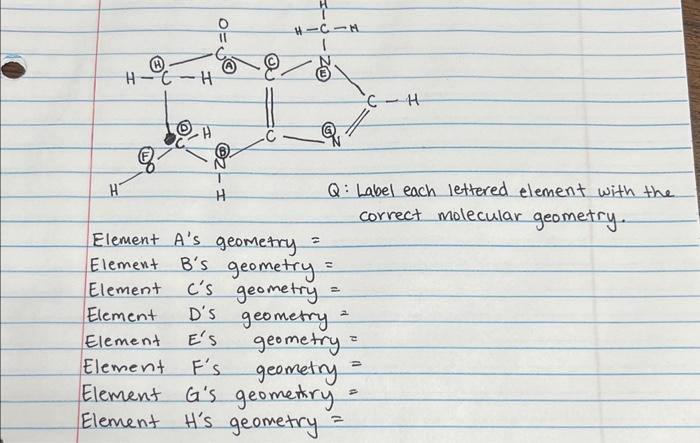 H
O H-C-H
C N
H A C E
H-C-H C
C-H
D H G
C C N
F B
O N
H H
Q: Label each lettered element with the
correct molecular geometry.
Element A's geometry =
Element B's geometry =
Element C's geometry =
Element D's geometry =
Element E's geometry =
Element F's geometry =
Element G's geometry =
Element H's geometry =